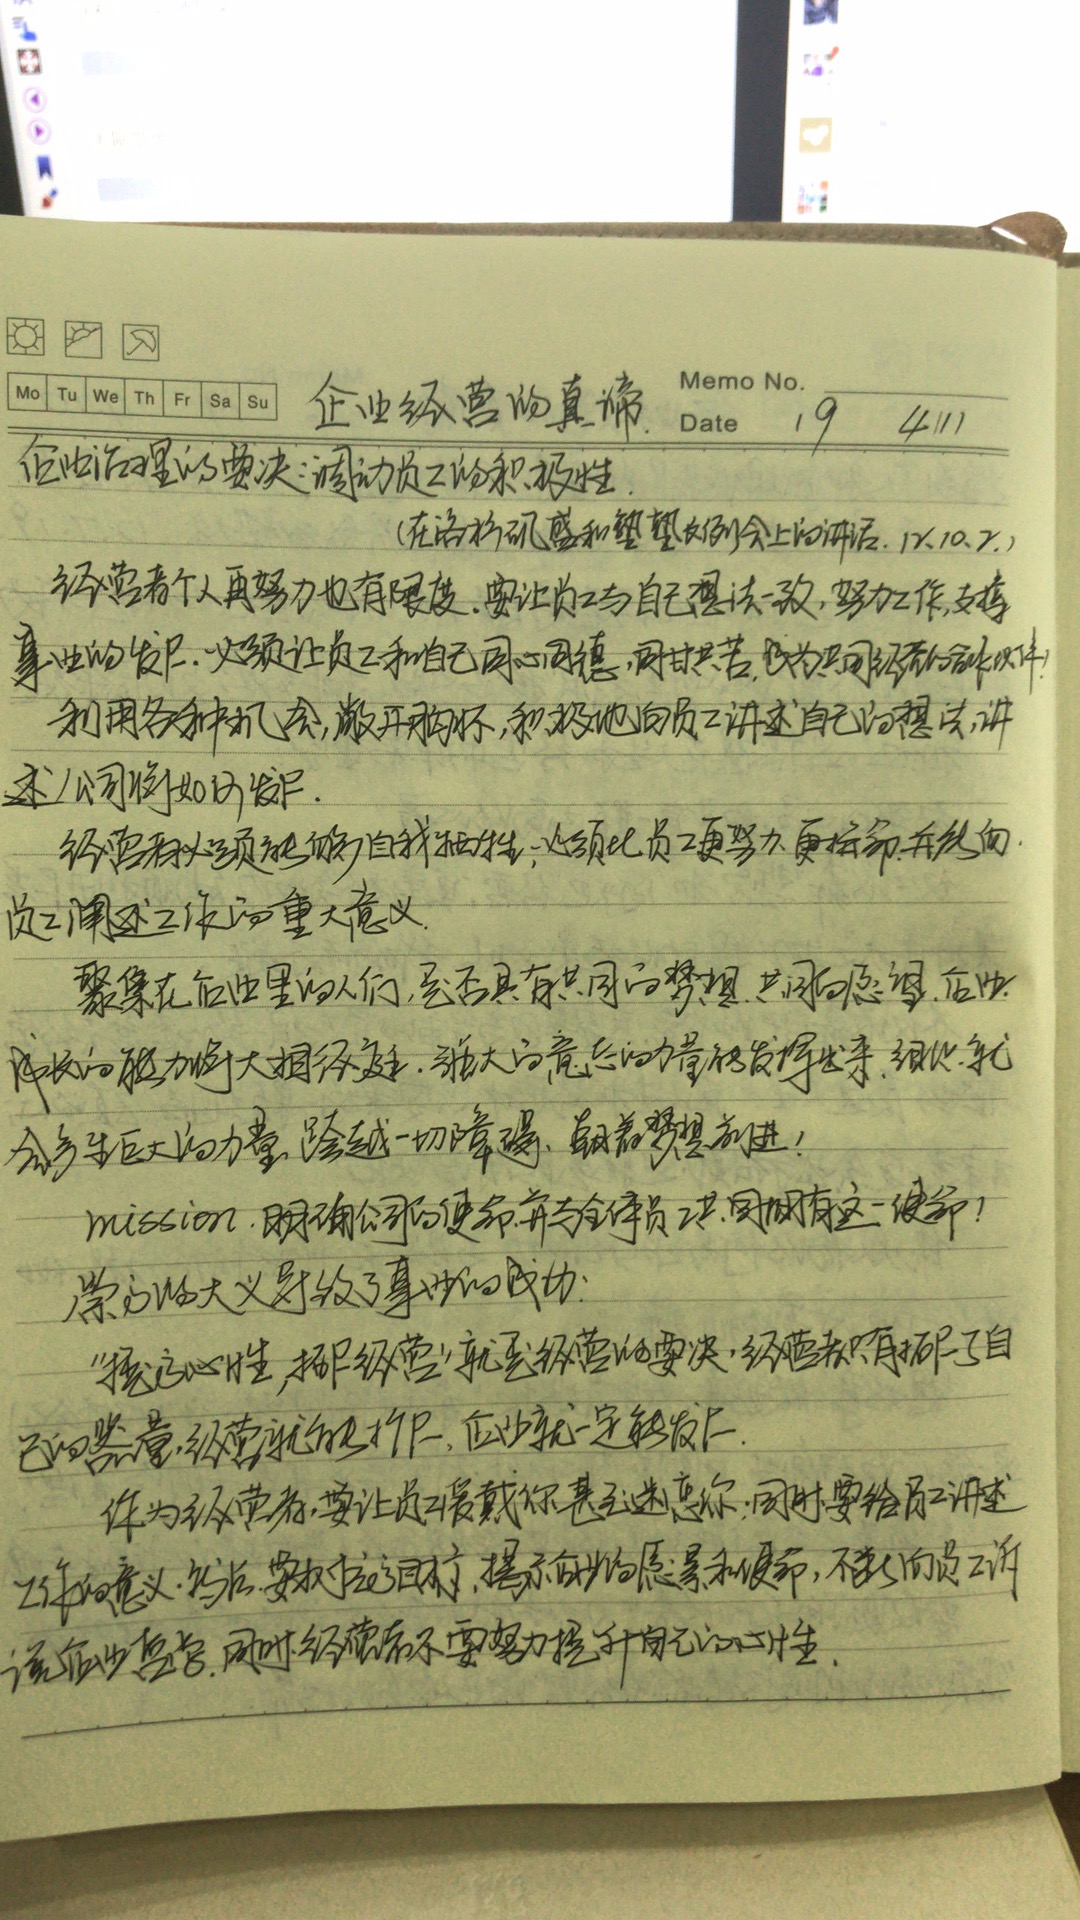 Mo Tu We Th Fr Sa Su
企业经营的真谛.
Memo No.
Date 19 4/11
企业治理的要决:调动员工的积极性.
(在洛杉矶盛和塾塾长例会上的讲话.12.10.2.)
经营者个人再努力也有限度.要让员工与自己想法一致,努力工作,支撑
事业的发展.必须让员工和自己同心同德,同甘共苦,成为共同经营的合作伙伴!
利用各种机会,敞开胸怀,积极地向员工讲述自己的想法,讲
述公司将如何发展.
经营者必须能够自我牺牲;必须比员工更努力.更拼命.并能向
员工阐述工作的重大意义.
聚集在企业里的人们,是否具有共同的梦想.共同的愿望.企业
成长的能力将大相径庭.强大的意志的力量能发挥出来,组织就
会产生巨大的力量,跨越一切障碍,朝着梦想前进!
mission.明确公司的使命.并与全体员工共同拥有这一使命!
崇高的大义导致了事业的成功:
"提高心性,拓展经营"就是经营的要决,经营者只有拓展了自
己的器量,经营就能扩展,企业就一定能发展.
作为经营者,要让员工爱戴你甚至迷恋你;同时要给员工讲述
工作的意义.然后.要树立高目标,揭示企业的愿景和使命,不断向员工诉
说企业哲学.同时经营者不要努力提升自己的心性.